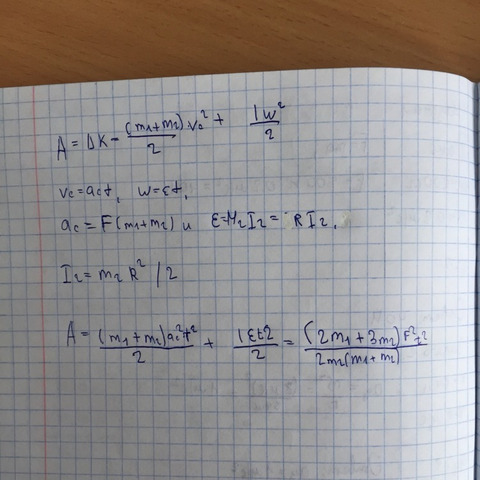 A = ΔK - (m1+m2)vc²/2 + Iw²/2
vc=act, w=εt,
ac = F(m1+m2) и ε=M2I2= RI2,
I2 = m2R²/2
A = (m1+m2)ac²t²/2 + Iεt2/2 = (2m1+3m2)F²t²/2m2(m1+m2)